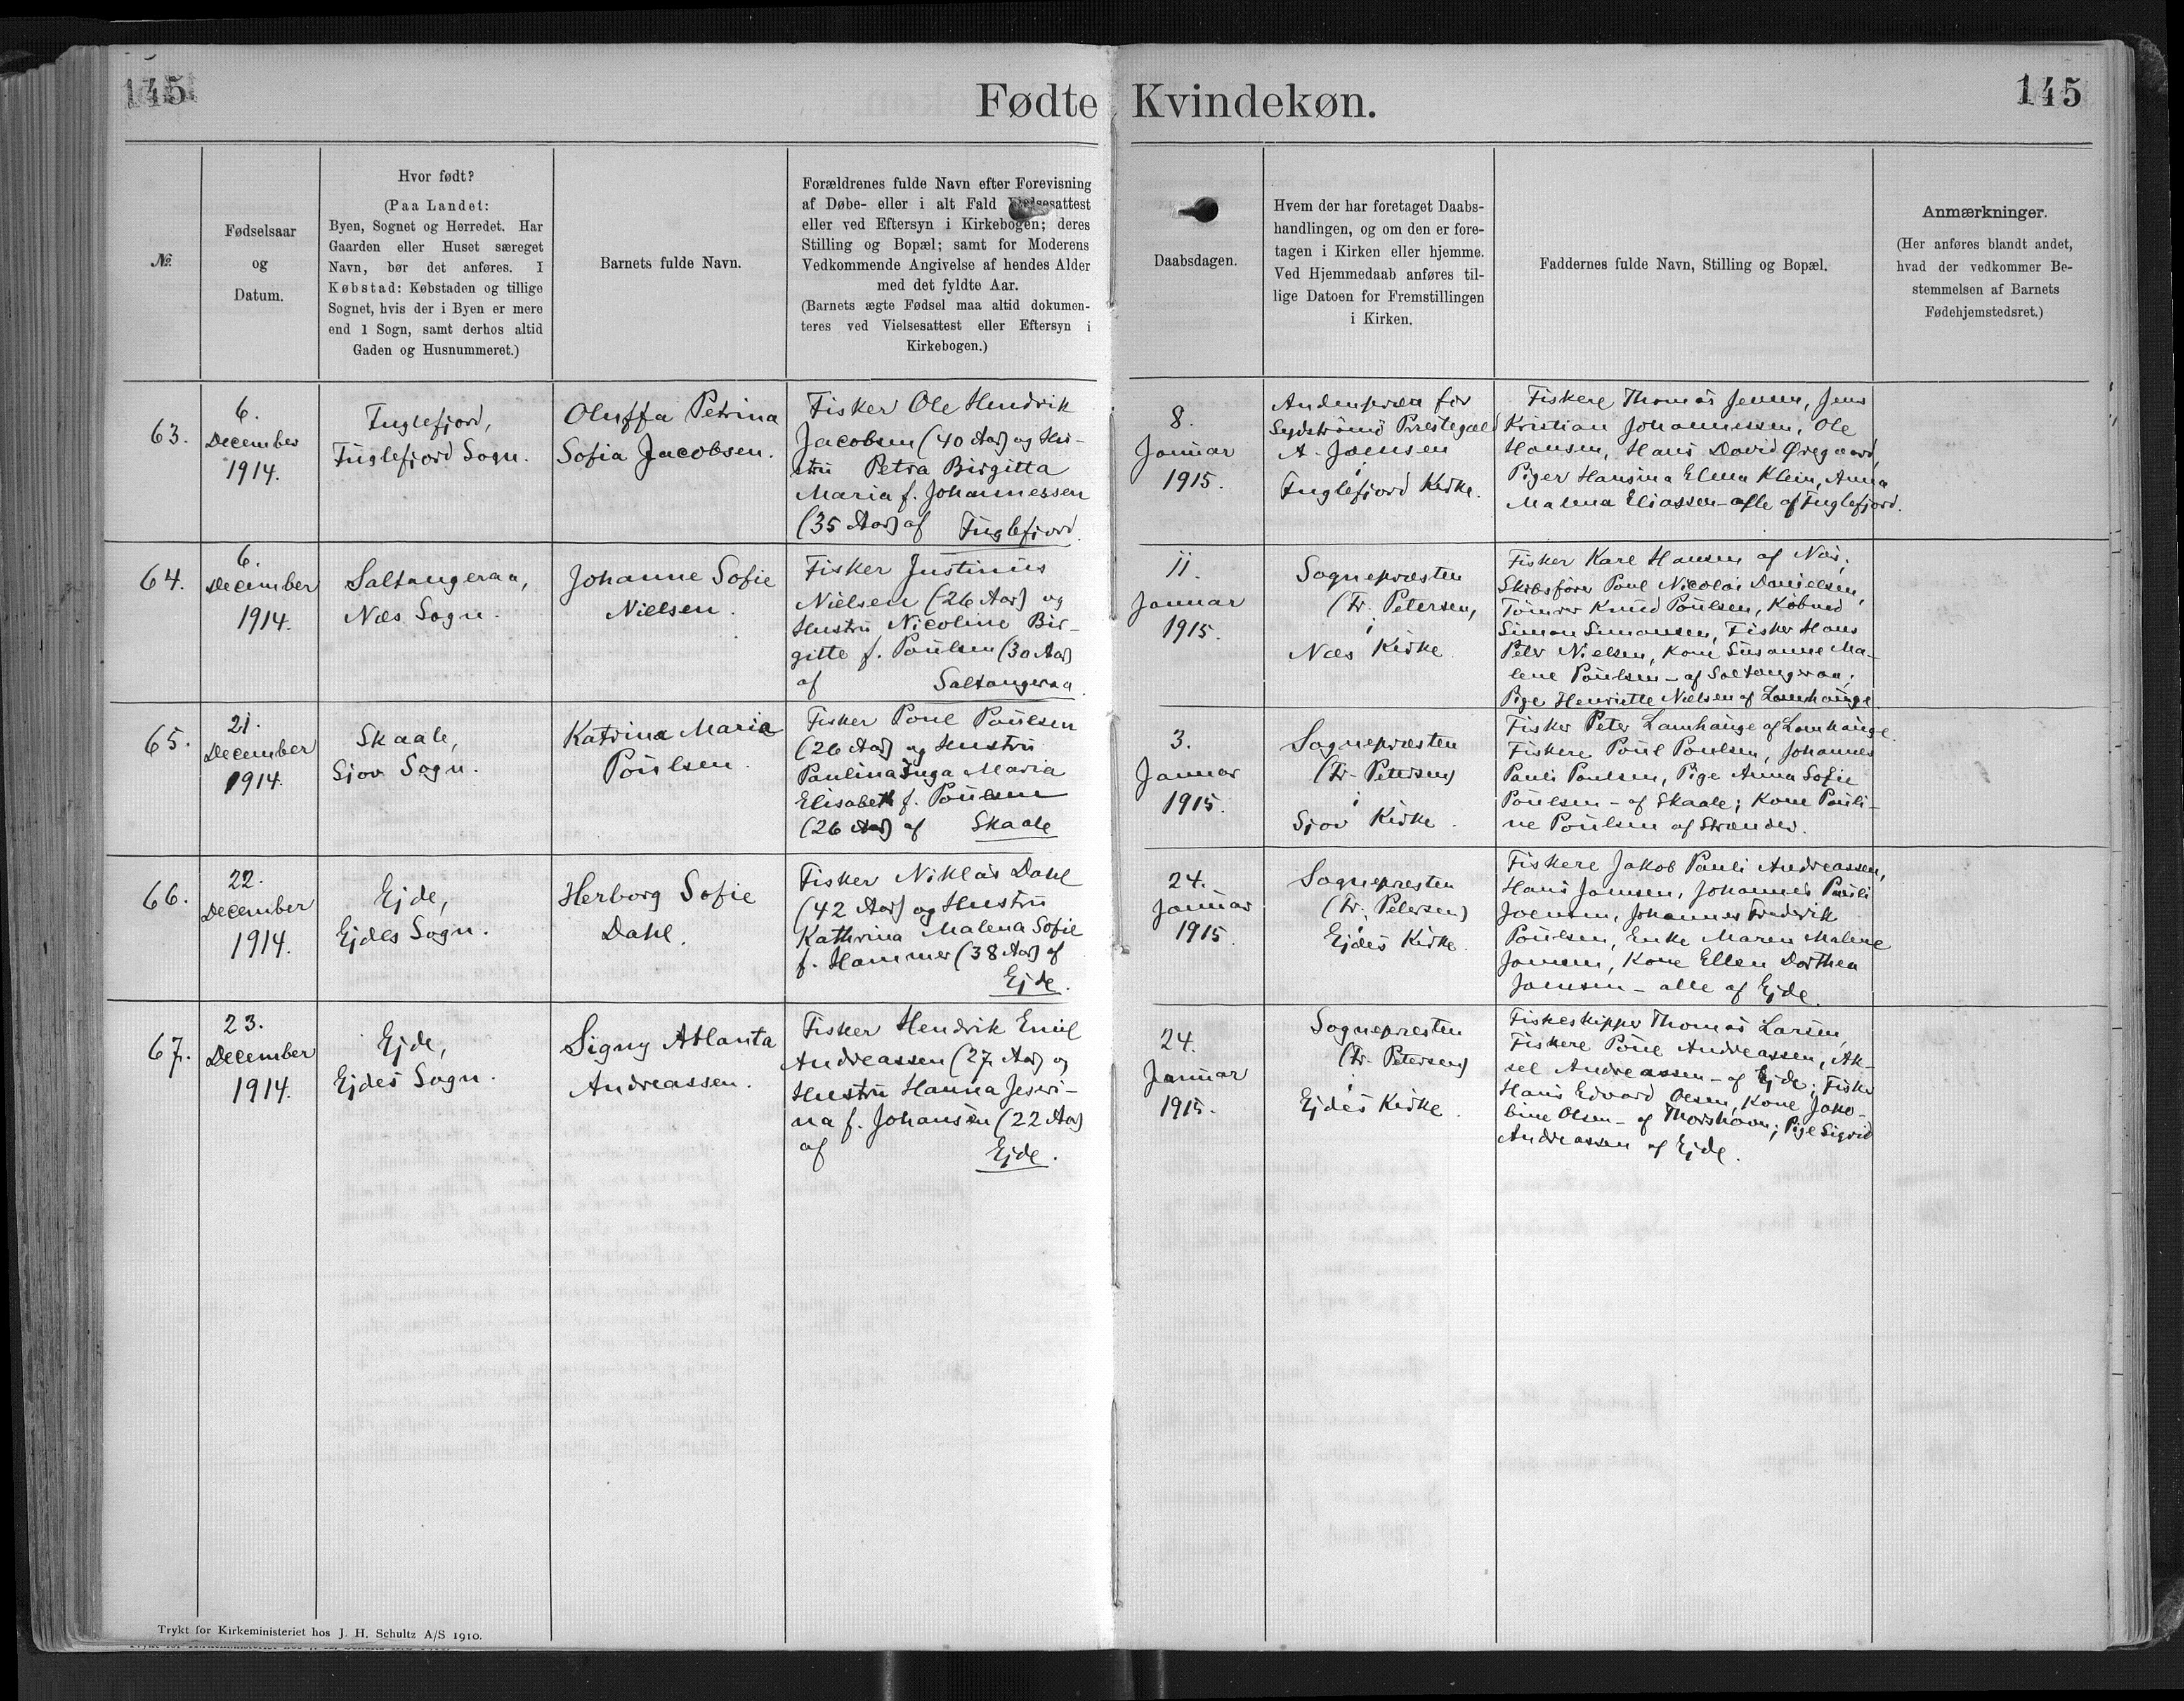 145
Fødte Kvindekøn.
145
№
Fødselsaar
og
Datum.
Hvor født?
(Paa Landet:
Byen, Sognet og Herredet. Har
Gaarden eller Huset særeget
Navn, bør det anføres. I
Købstad: Købstaden og tillige
Sognet, hvis der i Byen er mere
end 1 Sogn, samt derhos altid
Gaden og Husnummeret.)
Barnets fulde Navn.
Forældrenes fulde Navn efter Forevisning
af Døbe- eller i alt Fald Vielsesattest
eller ved Eftersyn i Kirkebogen; deres
Stilling og Bopæl; samt for Moderens
Vedkommende Angivelse af hendes Alder
med det fyldte Aar.
(Barnets ægte Fødsel maa altid dokumen-
teres ved Vielsesattest eller Eftersyn i
Kirkebogen.)
Daabsdagen.
Hvem der har foretaget Daabs-
handlingen, og om den er fore-
tagen i Kirken eller hjemme.
Ved Hjemmedaab anføres til-
lige Datoen for Fremstillingen
i Kirken.
Faddernes fulde Navn, Stilling og Bopæl.
Anmærkninger.
(Her anføres blandt andet,
hvad der vedkommer Be-
stemmelsen af Barnets
Fødehjemstedsret.)
63.
6.
December
1914.
Fuglefjord,
Fuglefjord Sogn.
Oluffa Petrina
Sofia Jacobsen.
Fisker Ole Hendrik
Jacobsen (40 Aar) og Hu-
stru Petra Birgitta
Maria f. Johannessen
(35 Aar) af Fuglefjord.
8.
Januar
1915.
Andenpræst for
Sydstrømø Præstegæld
A. Joensen
i
Fuglefjord Kirke.
Fiskere Thomas Jensen, Jens
Kristian Johannessen, Ole
Hansen, Hans David Øregaard,
Piger Hansina Elena Klein, Anna
Malena Eliassen - alle af Fuglefjord.
64.
6.
December
1914.
Saltangeraa,
Næs Sogn.
Johanne Sofie
Nielsen.
Fisker Justinus
Nielsen (26 Aar) og
Hustru Nicoline Bir-
gitte f. Poulsen (30 Aar)
af Saltangeraa.
11.
Januar
1915.
Sognepræsten
(Fr. Petersen,
i
Næs Kirke.
Fisker Karl Hansen af Næs;
Skibsfører Poul Nicolai Danielsen,
Tømrer Knud Poulsen, Købmd
Simon Simonsen, Fisker Hans
Peter Nielsen, Kone Susanne Ma-
lene Poulsen - af Saltangeraa;
Pige Henriette Nielsen af Lamhauge.
65.
21.
December
1914.
Skaale,
Sjov Sogn.
Katrina Maria
Poulsen.
Fisker Poul Poulsen
(26 Aar) og Hustru
Paulina Inga Maria
Elisabeth f. Poulsen
(26 Aar) af Skaale
3.
Januar
1915.
Sognepræsten
(Fr. Petersen)
i
Sjov Kirke.
Fisker Peter Lamhauge af Lamhauge.
Fiskere Poul Poulsen, Johannes
Pauli Poulsen, Pige Anna Sofie
Poulsen - af Skaale; Kone Pauli-
ne Poulsen af Strænder.
66.
22.
December
1914.
Ejde,
Ejdes Sogn.
Herborg Sofie
Dahl.
Fisker Niklas Dahl
(42 Aar) og Hustru
Kathrina Malena Sofie
f. Hammer (38 Aar) af
Ejde.
24.
Januar
1915.
Sognepræsten
(Fr. Petersen)
i
Ejdes Kirke.
Fiskere Jakob Pauli Andreassen,
Hans Joensen, Johannes Pauli
Joensen, Johannes Frederik
Poulsen, Enke Maren Malene
Joensen, Kone Ellen Dorthea
Joensen - alle af Ejde.
67.
23.
December
1914.
Ejde,
Ejdes Sogn.
Signy Atlanta
Andreassen.
Fisker Hendrik Emil
Andreassen (27 Aar) og
Hustru Hanna Jesvi-
na f. Johansen (22 Aar)
af Ejde.
24.
Januar
1915.
Sognepræsten
(Fr. Petersen)
i
Ejdes Kirke.
Fiskeskipper Thomas Larsen,
Fiskere Poul Andreassen, Ak-
sel Andreassen - af Ejde; Fisker
Hans Edvard Olsen, Kone Jako-
bine Olsen - af Thorshavn; Pige Sigrid
Andreassen af Ejde.
Trykt for Kirkeministeriet hos J. H. Schultz A/S 1910.